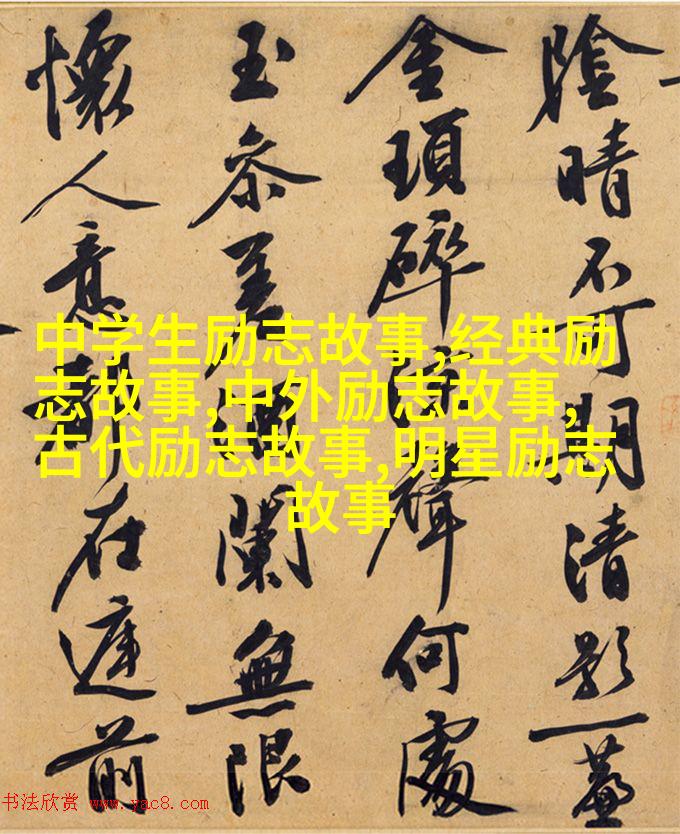 陰晴不可期清影一
金瑣碎聲何處
玉參差闌無限
懷人意在前
中学生励志故事,经典励
志故事,中外励志故事,
古代励志故事,明星励志
故事
书法欣赏 www.yac8.com